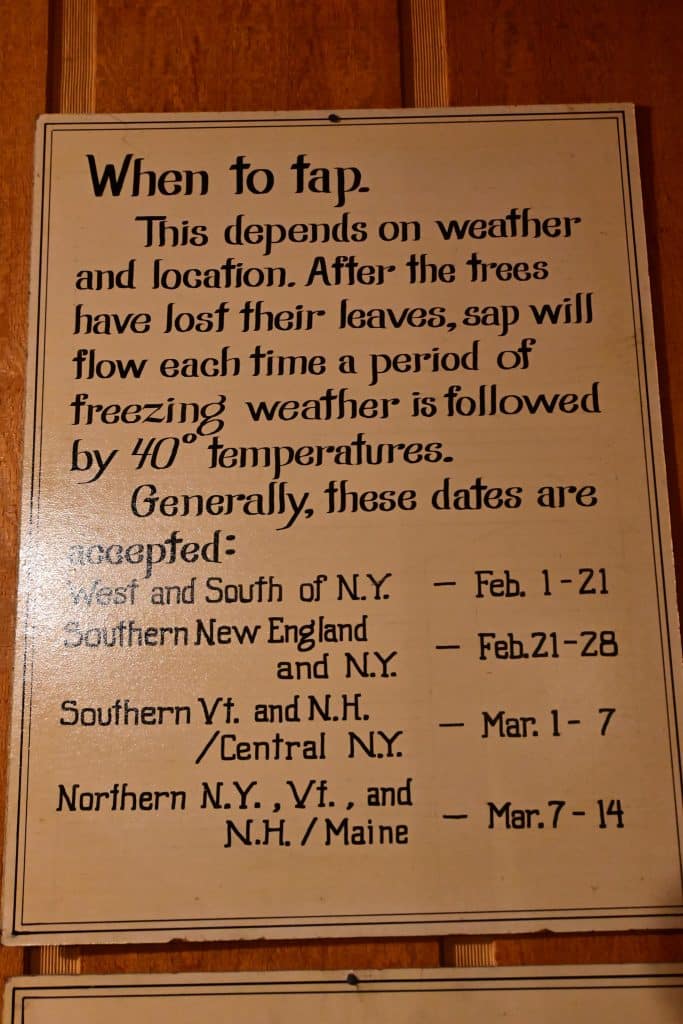 When to tap.
This depends on weather
and location. After the trees
have lost their leaves, sap will
flow each time a period of
freezing weather is followed
by 40° temperatures.
Generally, these dates are
accepted:
West and South of N.Y. — Feb. 1-21
Southern New England
and N.Y. — Feb. 21-28
Southern Vt. and N.H.
/Central N.Y. — Mar. 1- 7
Northern N.Y., Vt., and
N.H. / Maine — Mar. 7-14